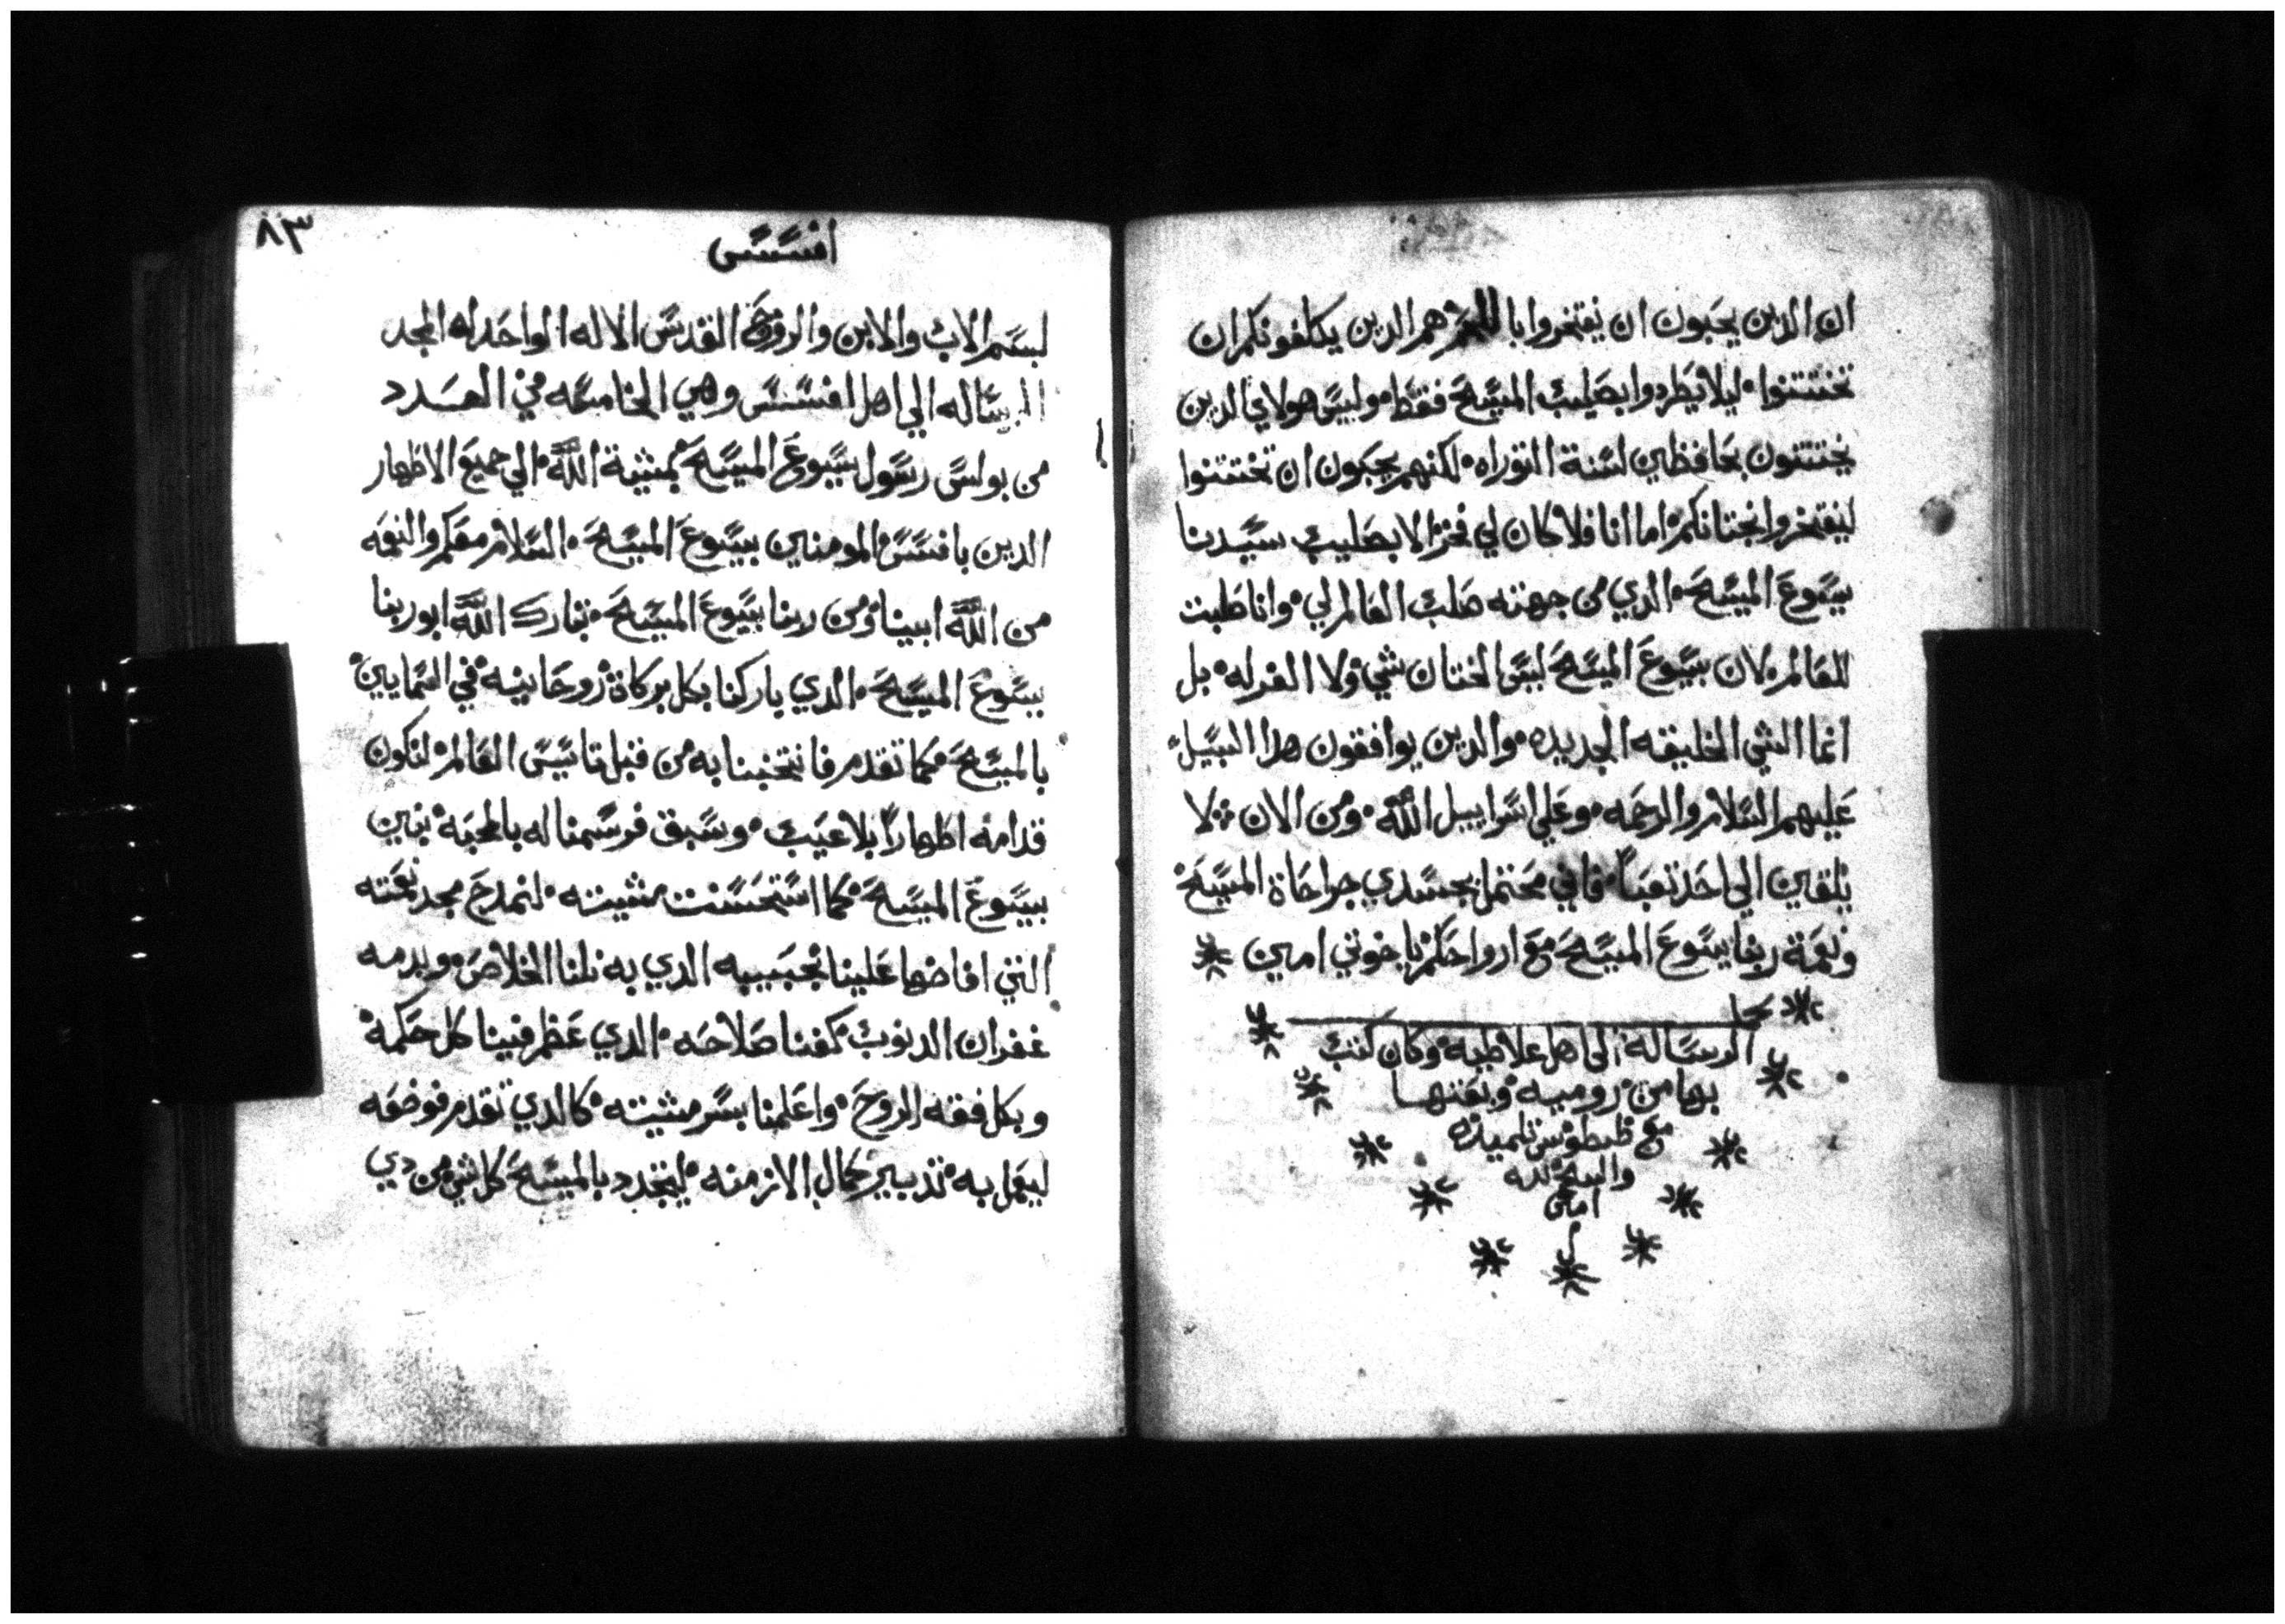 ان الدين يحبون ان يفتخروا باللحم هم الدين يكلفونكم ان
تختتنوا ليلا يطردوا بصليب المسيح فقط وليس هولاي الدين
يختتنون بحافظين لسنة التوراه لكنهم يحبون ان تختتنوا
ليفتخروا بختانكم اما انا فلا كان لي فخر الا بصليب سيدنا
يسوع المسيح الدي من جهته صلب العالم لي وانا صلبت
للعالم لان بيسوع المسيح ليس الختان شي ولا الغرله بل
انما الشي الخليقه الجديده والدين يوافقون هدا السبيل
عليهم السلام والرحمه وعلي اسراييل الله ومن الان لا
يلقين الي احد تعبا فاني محتمل بجسدي جراحاة المسيح
ونعمة ربنا يسوع المسيح مع ارواحكم يا خوتي امين
الرسالة الى اهل غلاطيه وكان كتب
بها من روميه وبعتها
مع طيطوس تلميده
والسبح لله
امين
٨٣
افسس
بسم الاب والابن والروح القدس الاله الواحد له المجد
الرساله الي اهل افسس وهي الخامسه في العدد
من بولس رسول يسوع المسيح بمشية الله الي جميع الاطهار
الدين بافسس المومنين بيسوع المسيح السلام معكم والنعمه
من الله ابينا ومن ربنا يسوع المسيح تبارك الله ابو ربنا
يسوع المسيح الدي باركنا بكل بركاة روحانيه في السمايين
بالمسيح كما تقدم فانتخبنا به من قبل تاسيس العالم لنكون
قدامه اطهارا بلا عيب وسبق فرسمنا له بالمحبه بنين
بيسوع المسيح كما استحسنت مشيته لنمدح مجد نعمته
التي افاضها علينا بحبيبه الدي به نلنا الخلاص وبدمه
غفران الدنوب كغنا صلاحه الدي عظم فينا كل حكمة
وبكل فقه الروح واعلمنا بسر مشيته كالدي تقدم فوضعه
ليعمل به تدبير كمال الازمنه ليتجدد بالمسيح كل شي من دي